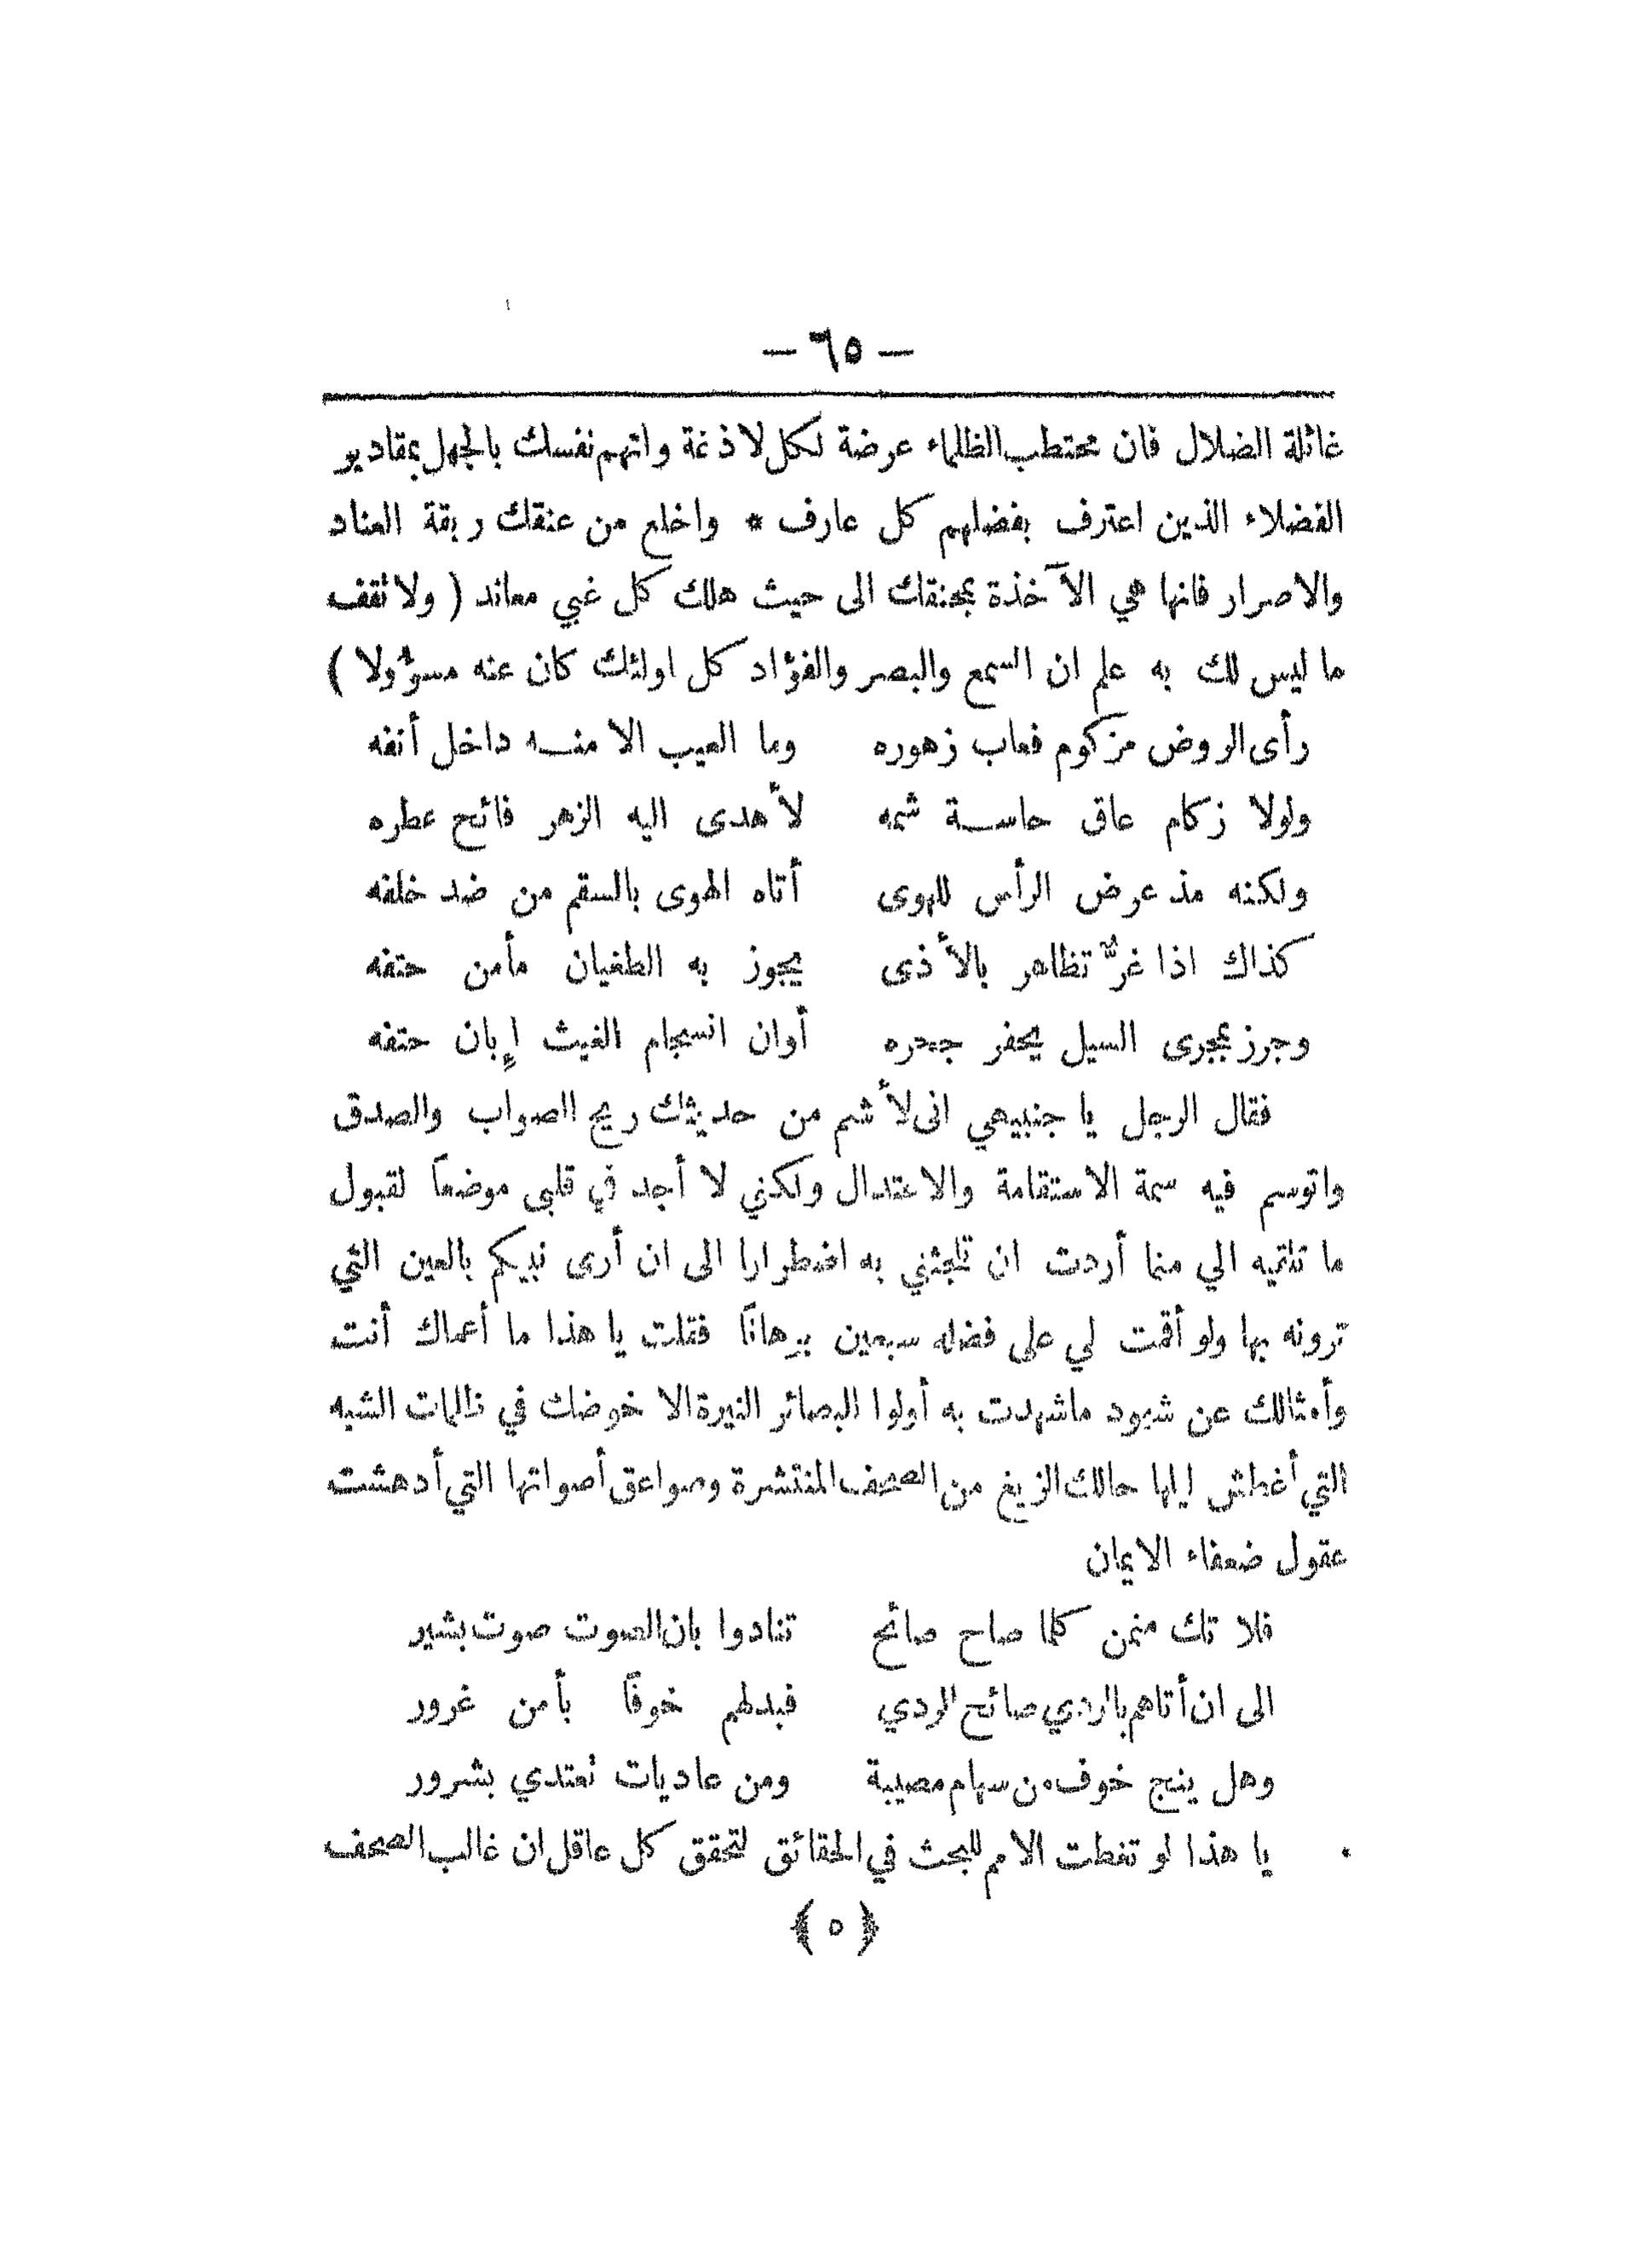 — ٦٥ —
غائلة الضلال فان محتطب الظلماء عرضة لكل لاذغة واتهم نفسك بالجهل بمقادير
الفضلاء الذين اعترف بفضلهم كل عارف * واخلع من عنقك ربقة العناد
والاصرار فانها هي الآخذة بمخنقك الى حيث هلك كل غبي معاند ( ولا تقف
ما ليس لك به علم ان السمع والبصر والفؤاد كل اولئك كان عنه مسؤولا )
رأى الروض مزكوم فعاب زهوره وما العيب الا منه داخل أنفه
ولولا زكام عاق حاسة شمه لأهدى اليه الزهر فائح عطره
ولكنه مذ عرض الرأس للهوى أتاه الهوى بالسقم من ضد خلفه
كذاك اذا غرٌّ تظاهر بالأذى يجوز به الطغيان مأمن حتفه
وجرز بمجرى السيل يحفر جحره أوان انسجام الغيث إبان حتفه
فقال الرجل يا جنبيهي انى لأشم من حديثك ريح الصواب والصدق
واتوسم فيه سمة الاستقامة والاعتدال ولكني لا أجد في قلبى موضعاً لقبول
ما تلقيه الي منما أردت ان تلجئني به اضطرارا الى ان أرى نبيكم بالعين التي
ترونه بها ولو أقمت لي على فضله سبعين برهانًا فقلت يا هذا ما أعماك أنت
وأمثالك عن شهود ما شهدت به أولوا البصائر النيرة الا خوضك في ظلمات الشبه
التي أغطش ليلها حالك الزيغ من الصحف المنتشرة وصواعق أصواتها التي أدهشت
عقول ضعفاء الايمان
فلا تك منمن كلما صاح صائح تنادوا بان الصوت صوت بشير
الى ان أتاهم بالردي صائح الردي فبدلهم خوفاً بأمن غرور
وهل ينج خوف من سهام مصيبة ومن عاديات تعتدي بشرور
يا هذا لو تفطت الامم للبحث في الحقائق لتحقق كل عاقل ان غالب الصحف
﴿ ٥ ﴾